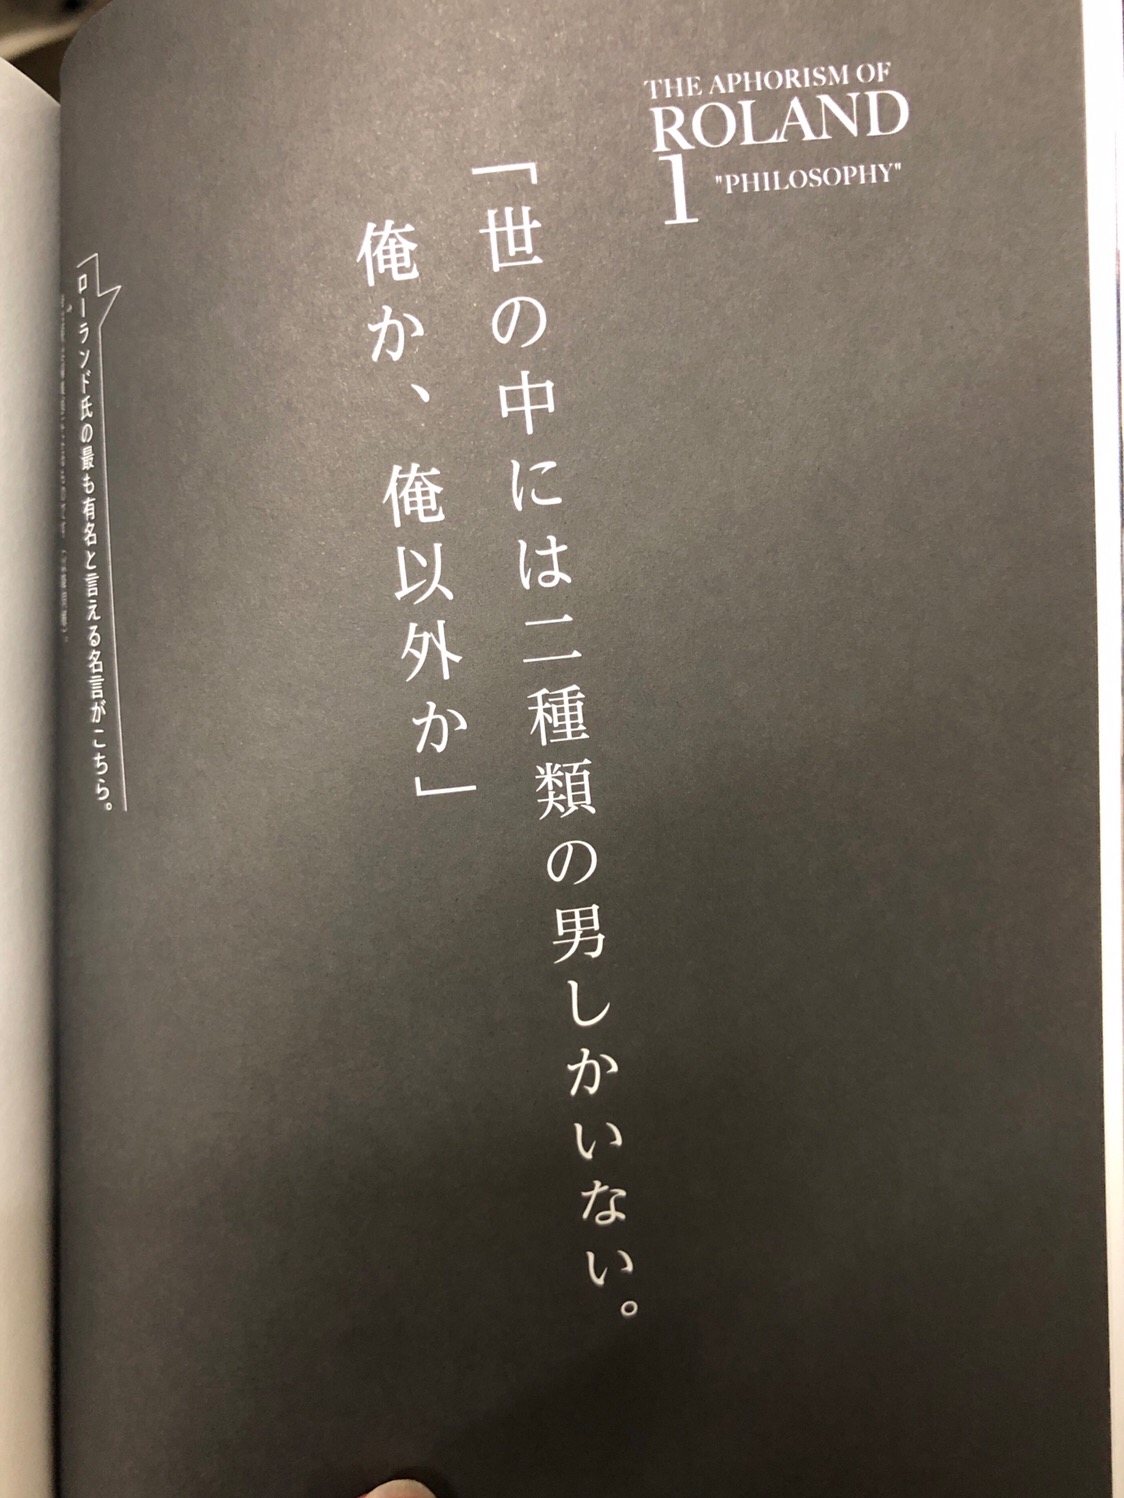 THE APHORISM OF
ROLAND
1 "PHILOSOPHY"
「世の中には二種類の男しかいない。
俺か、俺以外か」
ローランド氏の最も有名と言える名言がこちら。